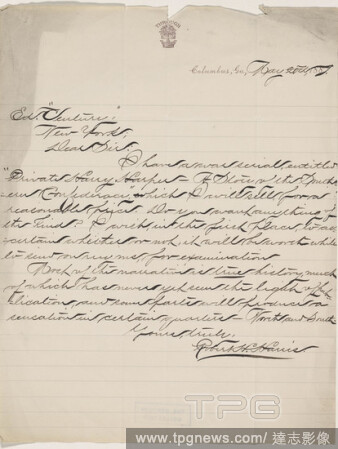 Columbus, Ga., May 20th, 87
Ed. "Century,"
New York,
Dear Sir:
I have a war serial, entitled
"Private Harry Harper - A Story of the South-
ern Confederacy," which I will sell for a
reasonable price. Do you want anything of
the kind? I write in the first place, to as-
certain whether or not it will be worth while
to send on my ms. for examination.
Much of the narrative is true history, much
of which has never yet seen the light of pub-
lication, and some parts will produce a
sensation in certain quarters - North and South.
Yours truly,
TPG
www.tpgnews.com / 達志影像